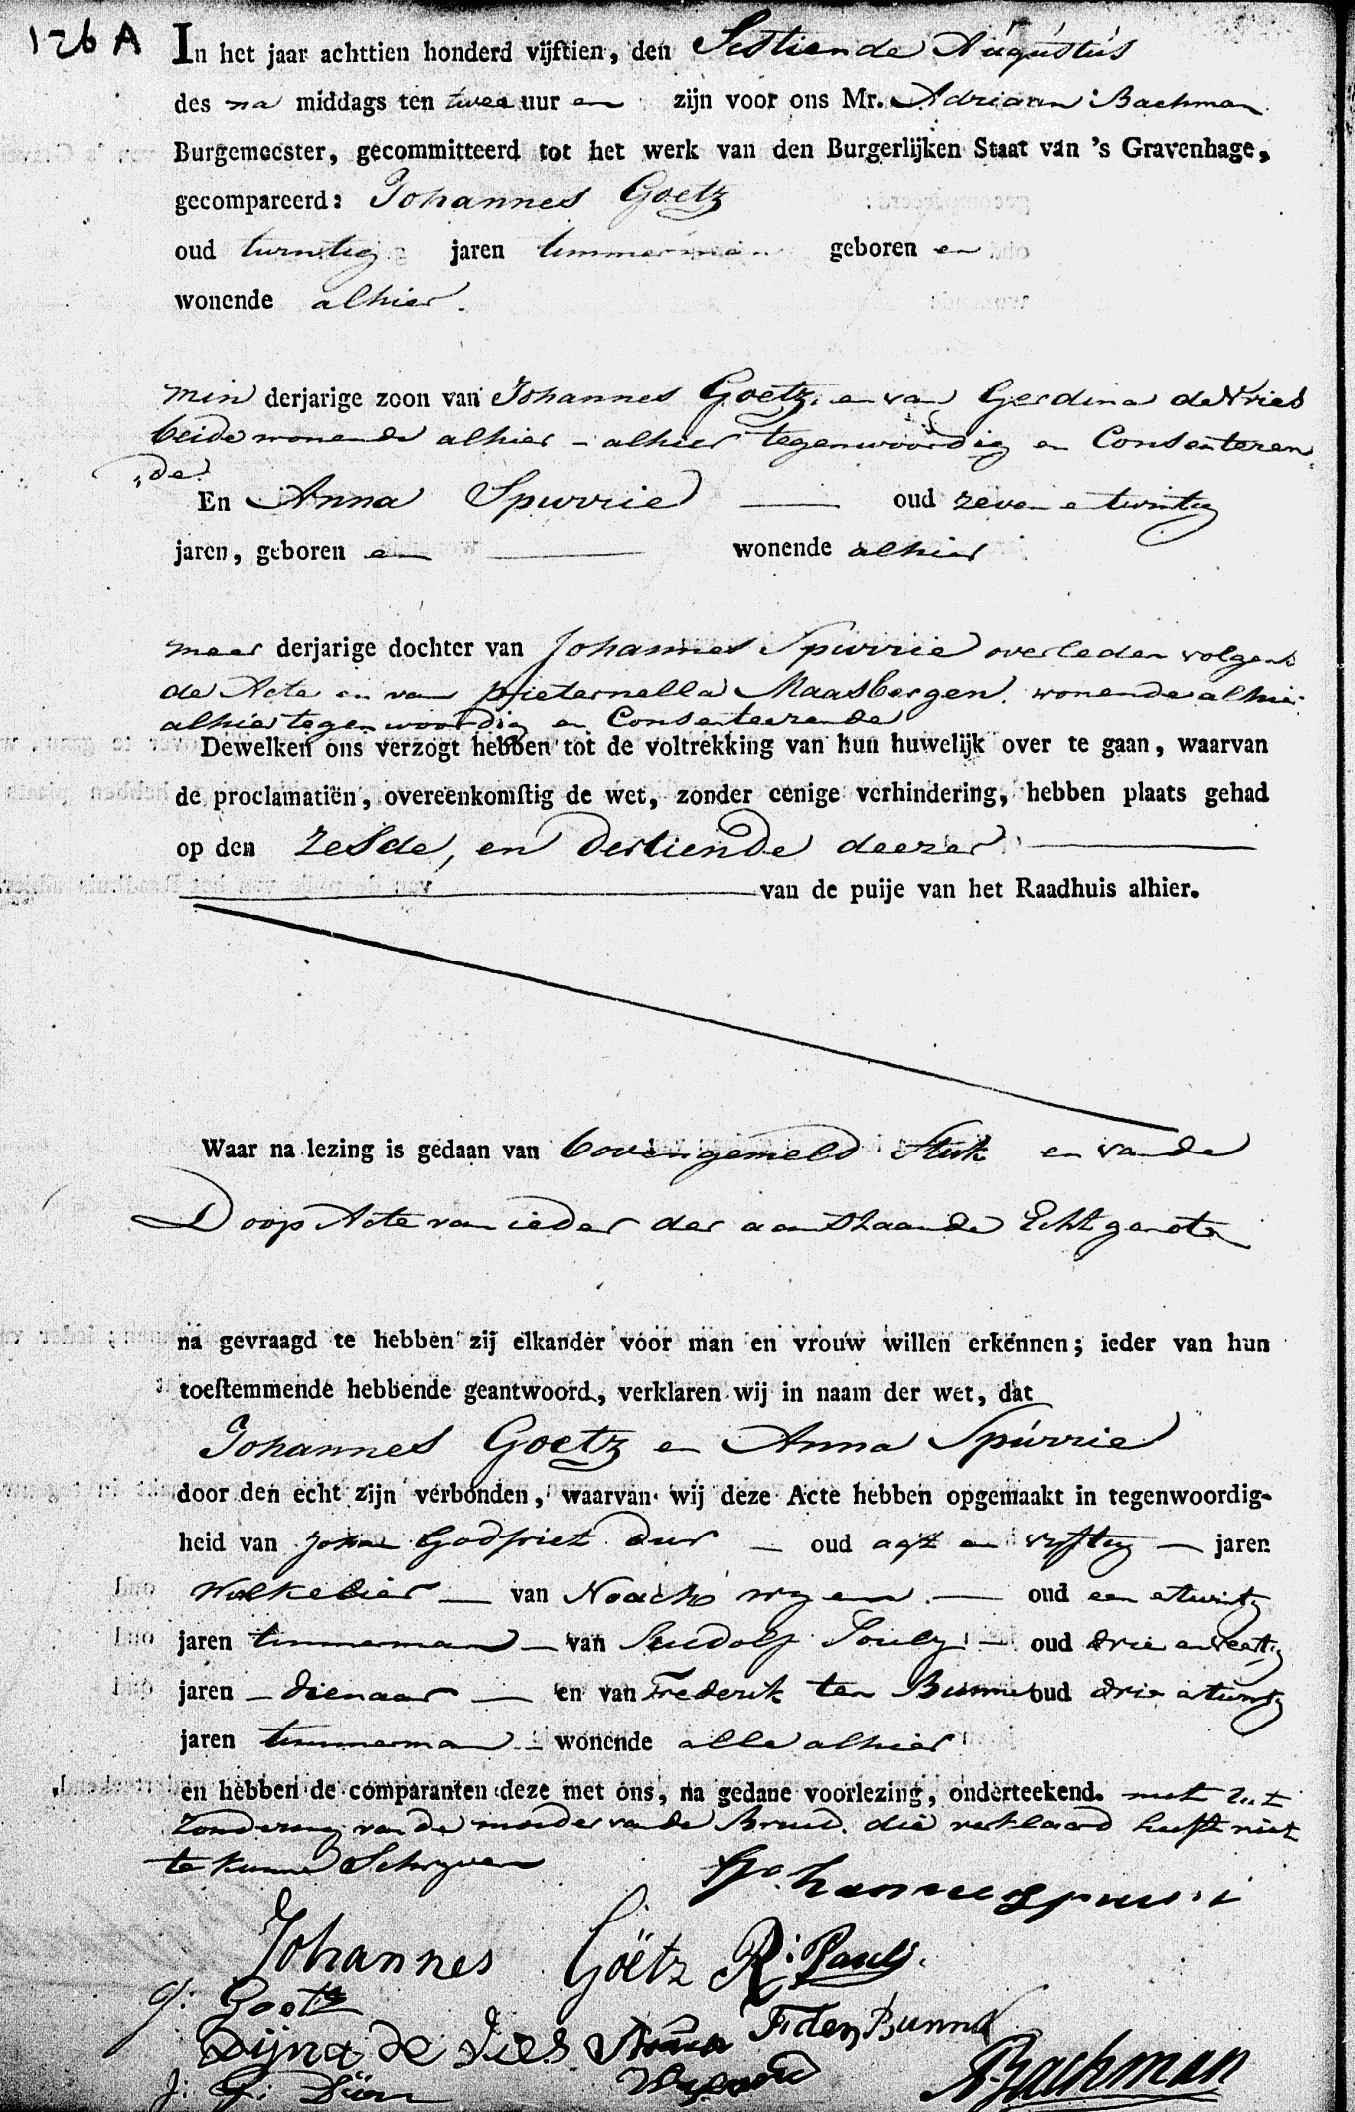 126 A
In het jaar achttien honderd vijftien, den Sestiende Augustus
des na middags ten twee uur en zijn voor ons Mr. Adriaan Bachman
Burgemeester, gecommitteerd tot het werk van den Burgerlijken Staat van 's Gravenhage,
gecompareerd: Johannes Goetz
oud twintig jaren timmerman geboren en
wonende alhier.
min derjarige zoon van Johannes Goetz en van Gerdina de Vries
beide wonende alhier - alhier tegenwoordig en Consenteren
de
En Anna Spurrie oud zeven e twintig
jaren, geboren en wonende alhier
meer derjarige dochter van Johannes Spurrie overleden volgens
de Acte en van pieternella Maasbergen wonende alhier
alhier tegenwoordig en Consenteerende
Dewelken ons verzogt hebben tot de voltrekking van hun huwelijk over te gaan, waarvan
de proclamatiën, overeenkomstig de wet, zonder eenige verhindering, hebben plaats gehad
op den zesde, en dertiende deezer
van de puije van het Raadhuis alhier.
Waar na lezing is gedaan van bovengemeld Stuk en van de
Doop Acte van ieder der aanstaande Echtgenoten
na gevraagd te hebben zij elkander voor man en vrouw willen erkennen; ieder van hun
toestemmende hebbende geantwoord, verklaren wij in naam der wet, dat
Johannes Goetz en Anna Spurrie
door den echt zijn verbonden, waarvan wij deze Acte hebben opgemaakt in tegenwoordig-
heid van Johan Godfriet oud agt en vyftig jaren
van Noach oud een e twintig
jaren timmerman van Rudolf Pouly oud drie en veertig
jaren - dienaar - en van Frederik ten Bumme oud drie e twintig
jaren timmerman - wonende alle alhier
en hebben de comparanten deze met ons, na gedane voorlezing, onderteekend. met uit
zondering van de moeder van de Bruid die verklaard heeft niet
te kunnen Schryven
Johannes Götz R: Pauly
J: Goetz
Dijna de Vies Anna F ten Bumme
J: G:
A Bachman